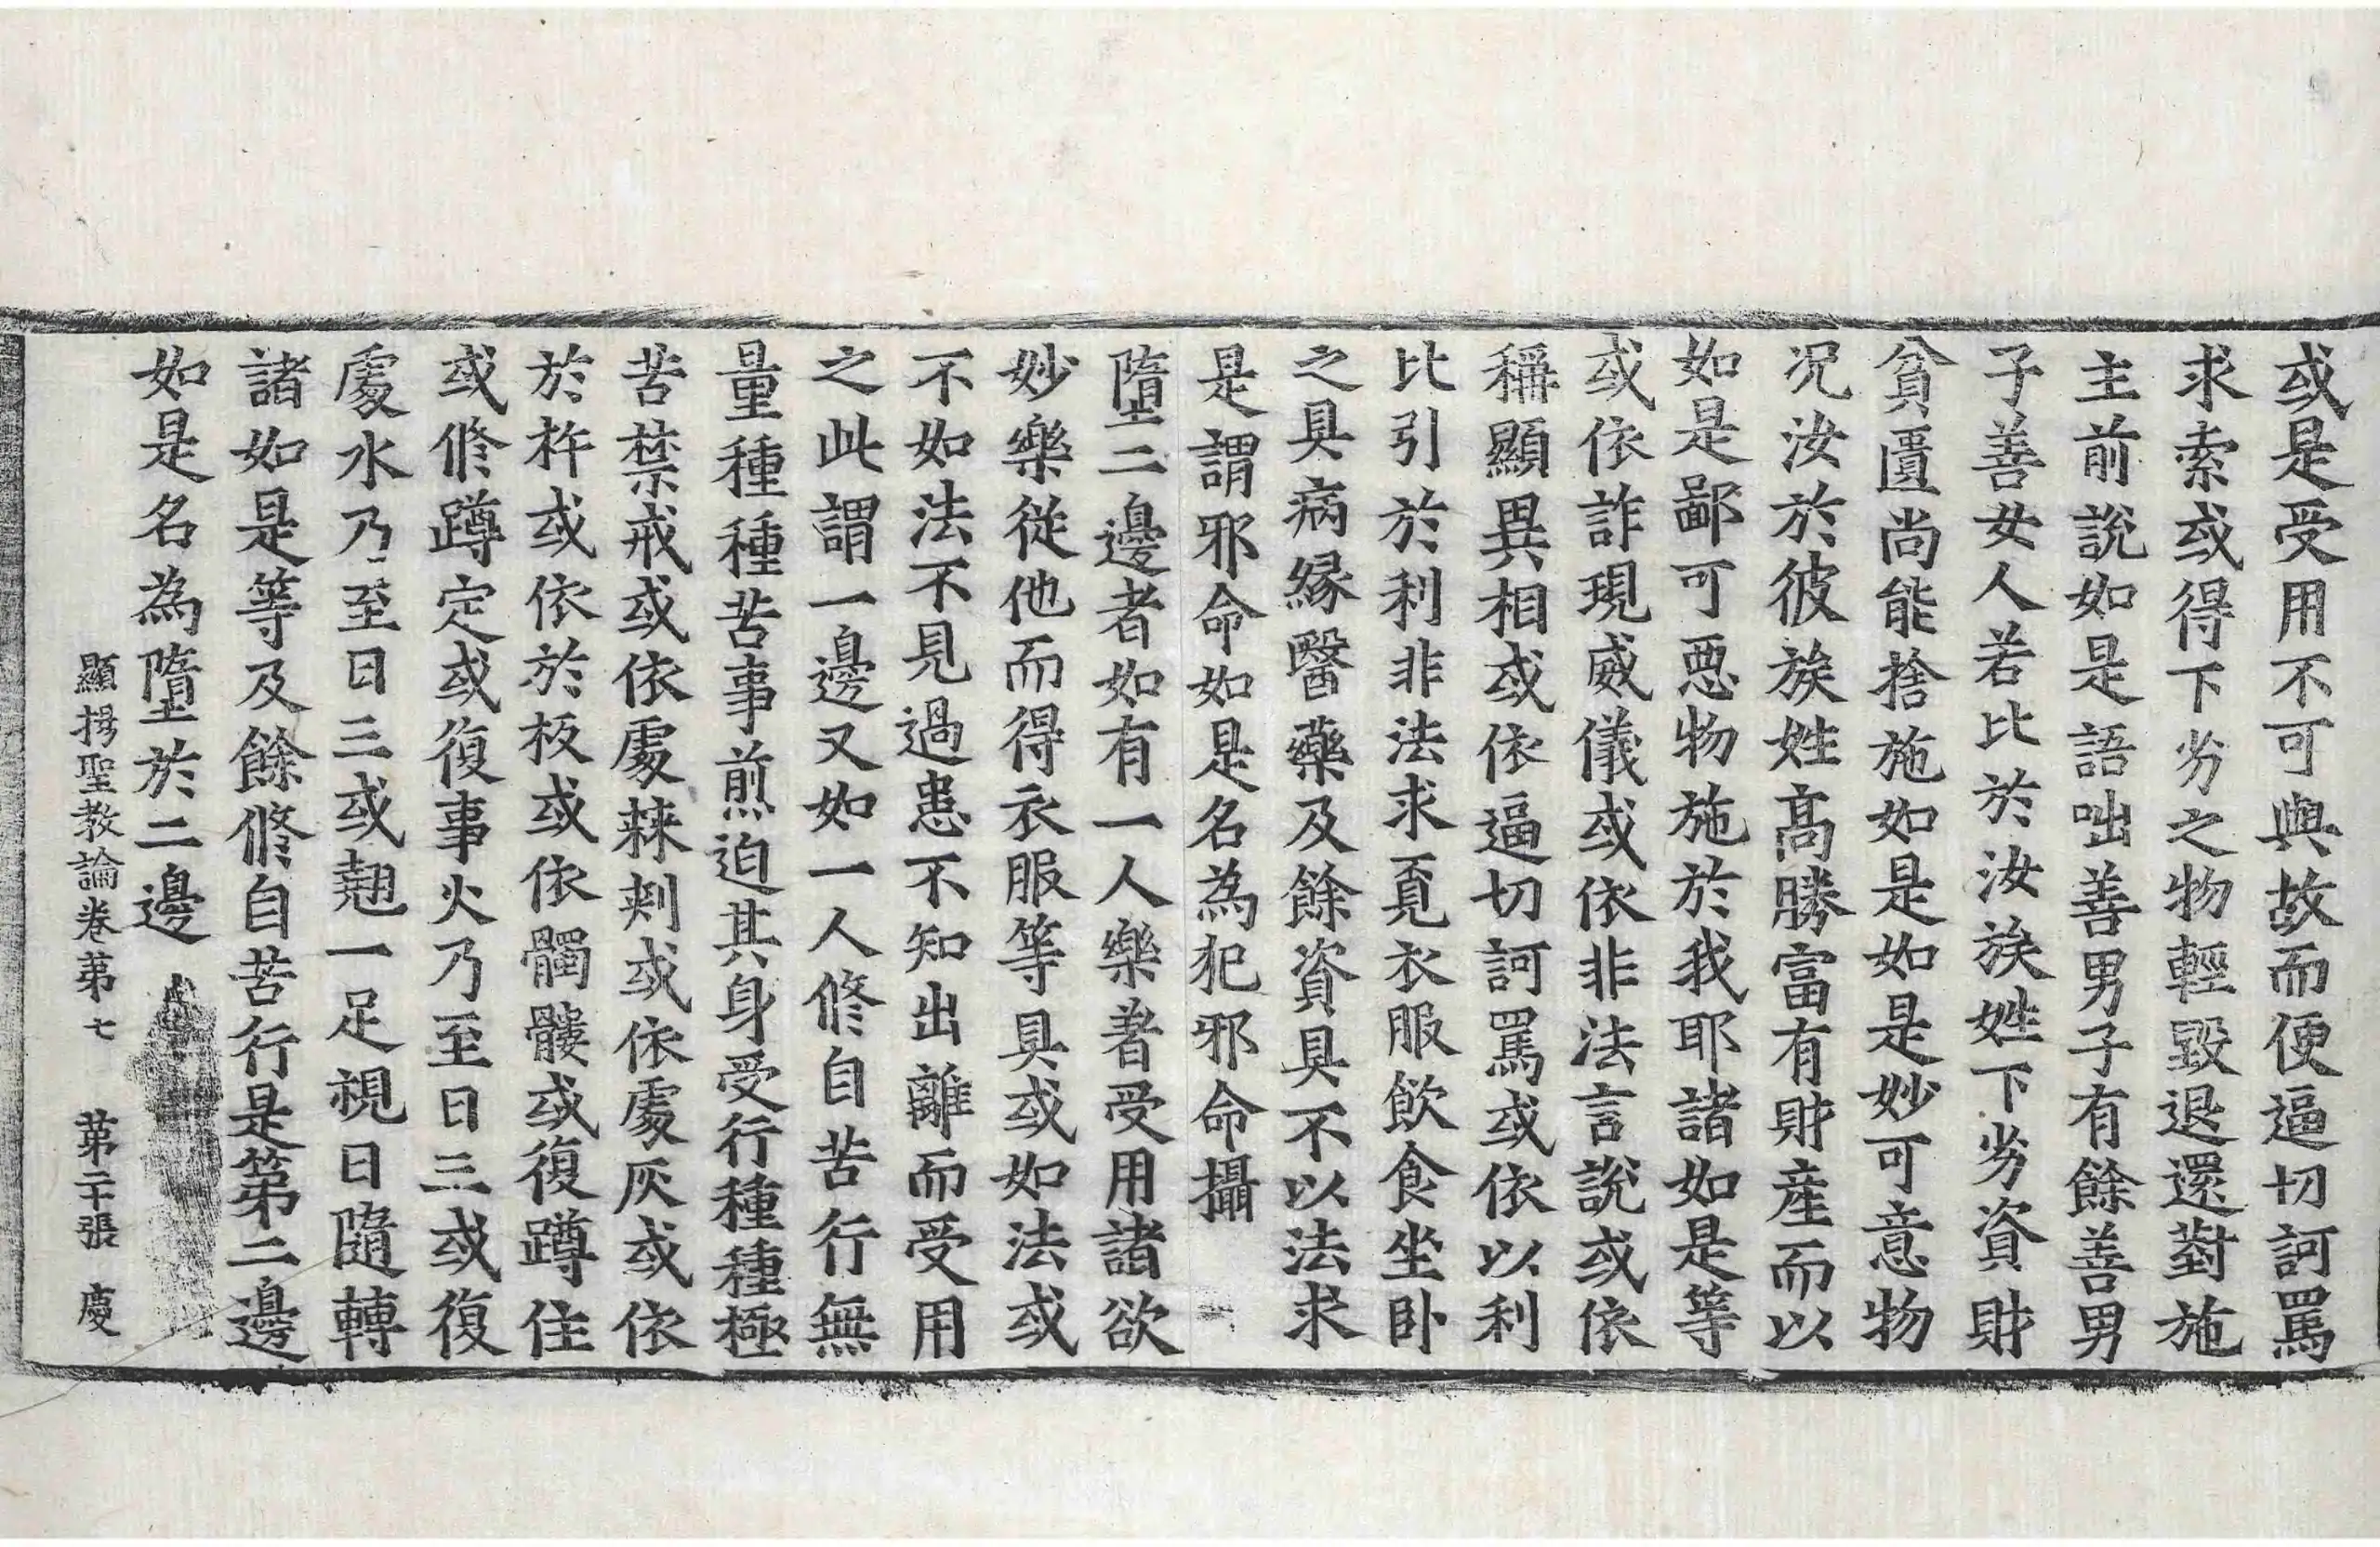 或是受用不可與故而便逼切訶罵
求索或得下劣之物輕毀退還對施
主前說如是語咄善男子有餘善男
子善女人若比於汝族姓下劣資財
貧匱尚能捨施如是如是妙可意物
况汝於彼族姓高勝富有財産而以
如是鄙可惡物施於我耶諸如是等
或依詐現威儀或依非法言說或依
稱顯異相或依逼切訶罵或依以利
比引於利非法求覓衣服飲食坐卧
之具病緣醫藥及餘資具不以法求
是謂邪命如是名為犯邪命攝
墮二邊者如有一人樂著受用諸欲
妙樂從他而得衣服等具或如法或
不如法不見過患不知出離而受用
之此謂一邊又如一人修自苦行無
量種種苦事煎迫其身受行種種極
苦禁戒或依處棘刺或依處灰或依
於杵或依於板或依髑髏或復蹲住
或修蹲定或復事火乃至日三或復
處水乃至日三或翹一足視日隨轉
諸如是等及餘修自苦行是第二邊
如是名為墮於二邊
顯揚聖教論卷第七 第二十張 慶